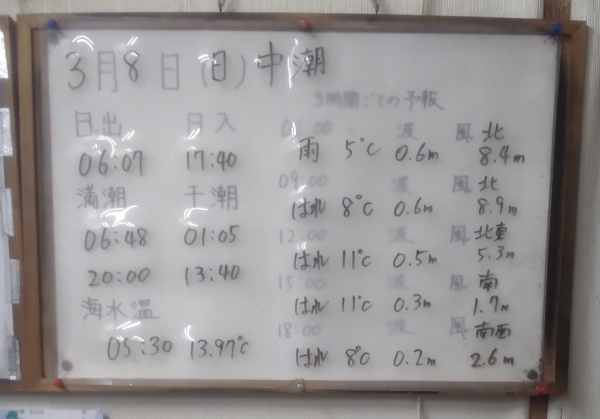 3月8日(日)中潮
3時間ごとの予報
日出 日入
06:07 17:40
満潮 干潮
06:48 01:05
20:00 13:40
海水温
05:30 13.97℃
06:00 波 風 北
雨 5℃ 0.6m 8.4m
09:00 波 風 北
はれ 8℃ 0.6m 8.9m
12:00 波 風 北東
はれ 11℃ 0.5m 5.3m
15:00 波 風 南
はれ 11℃ 0.3m 1.7m
18:00 波 風 南西
はれ 8℃ 0.2m 2.6m